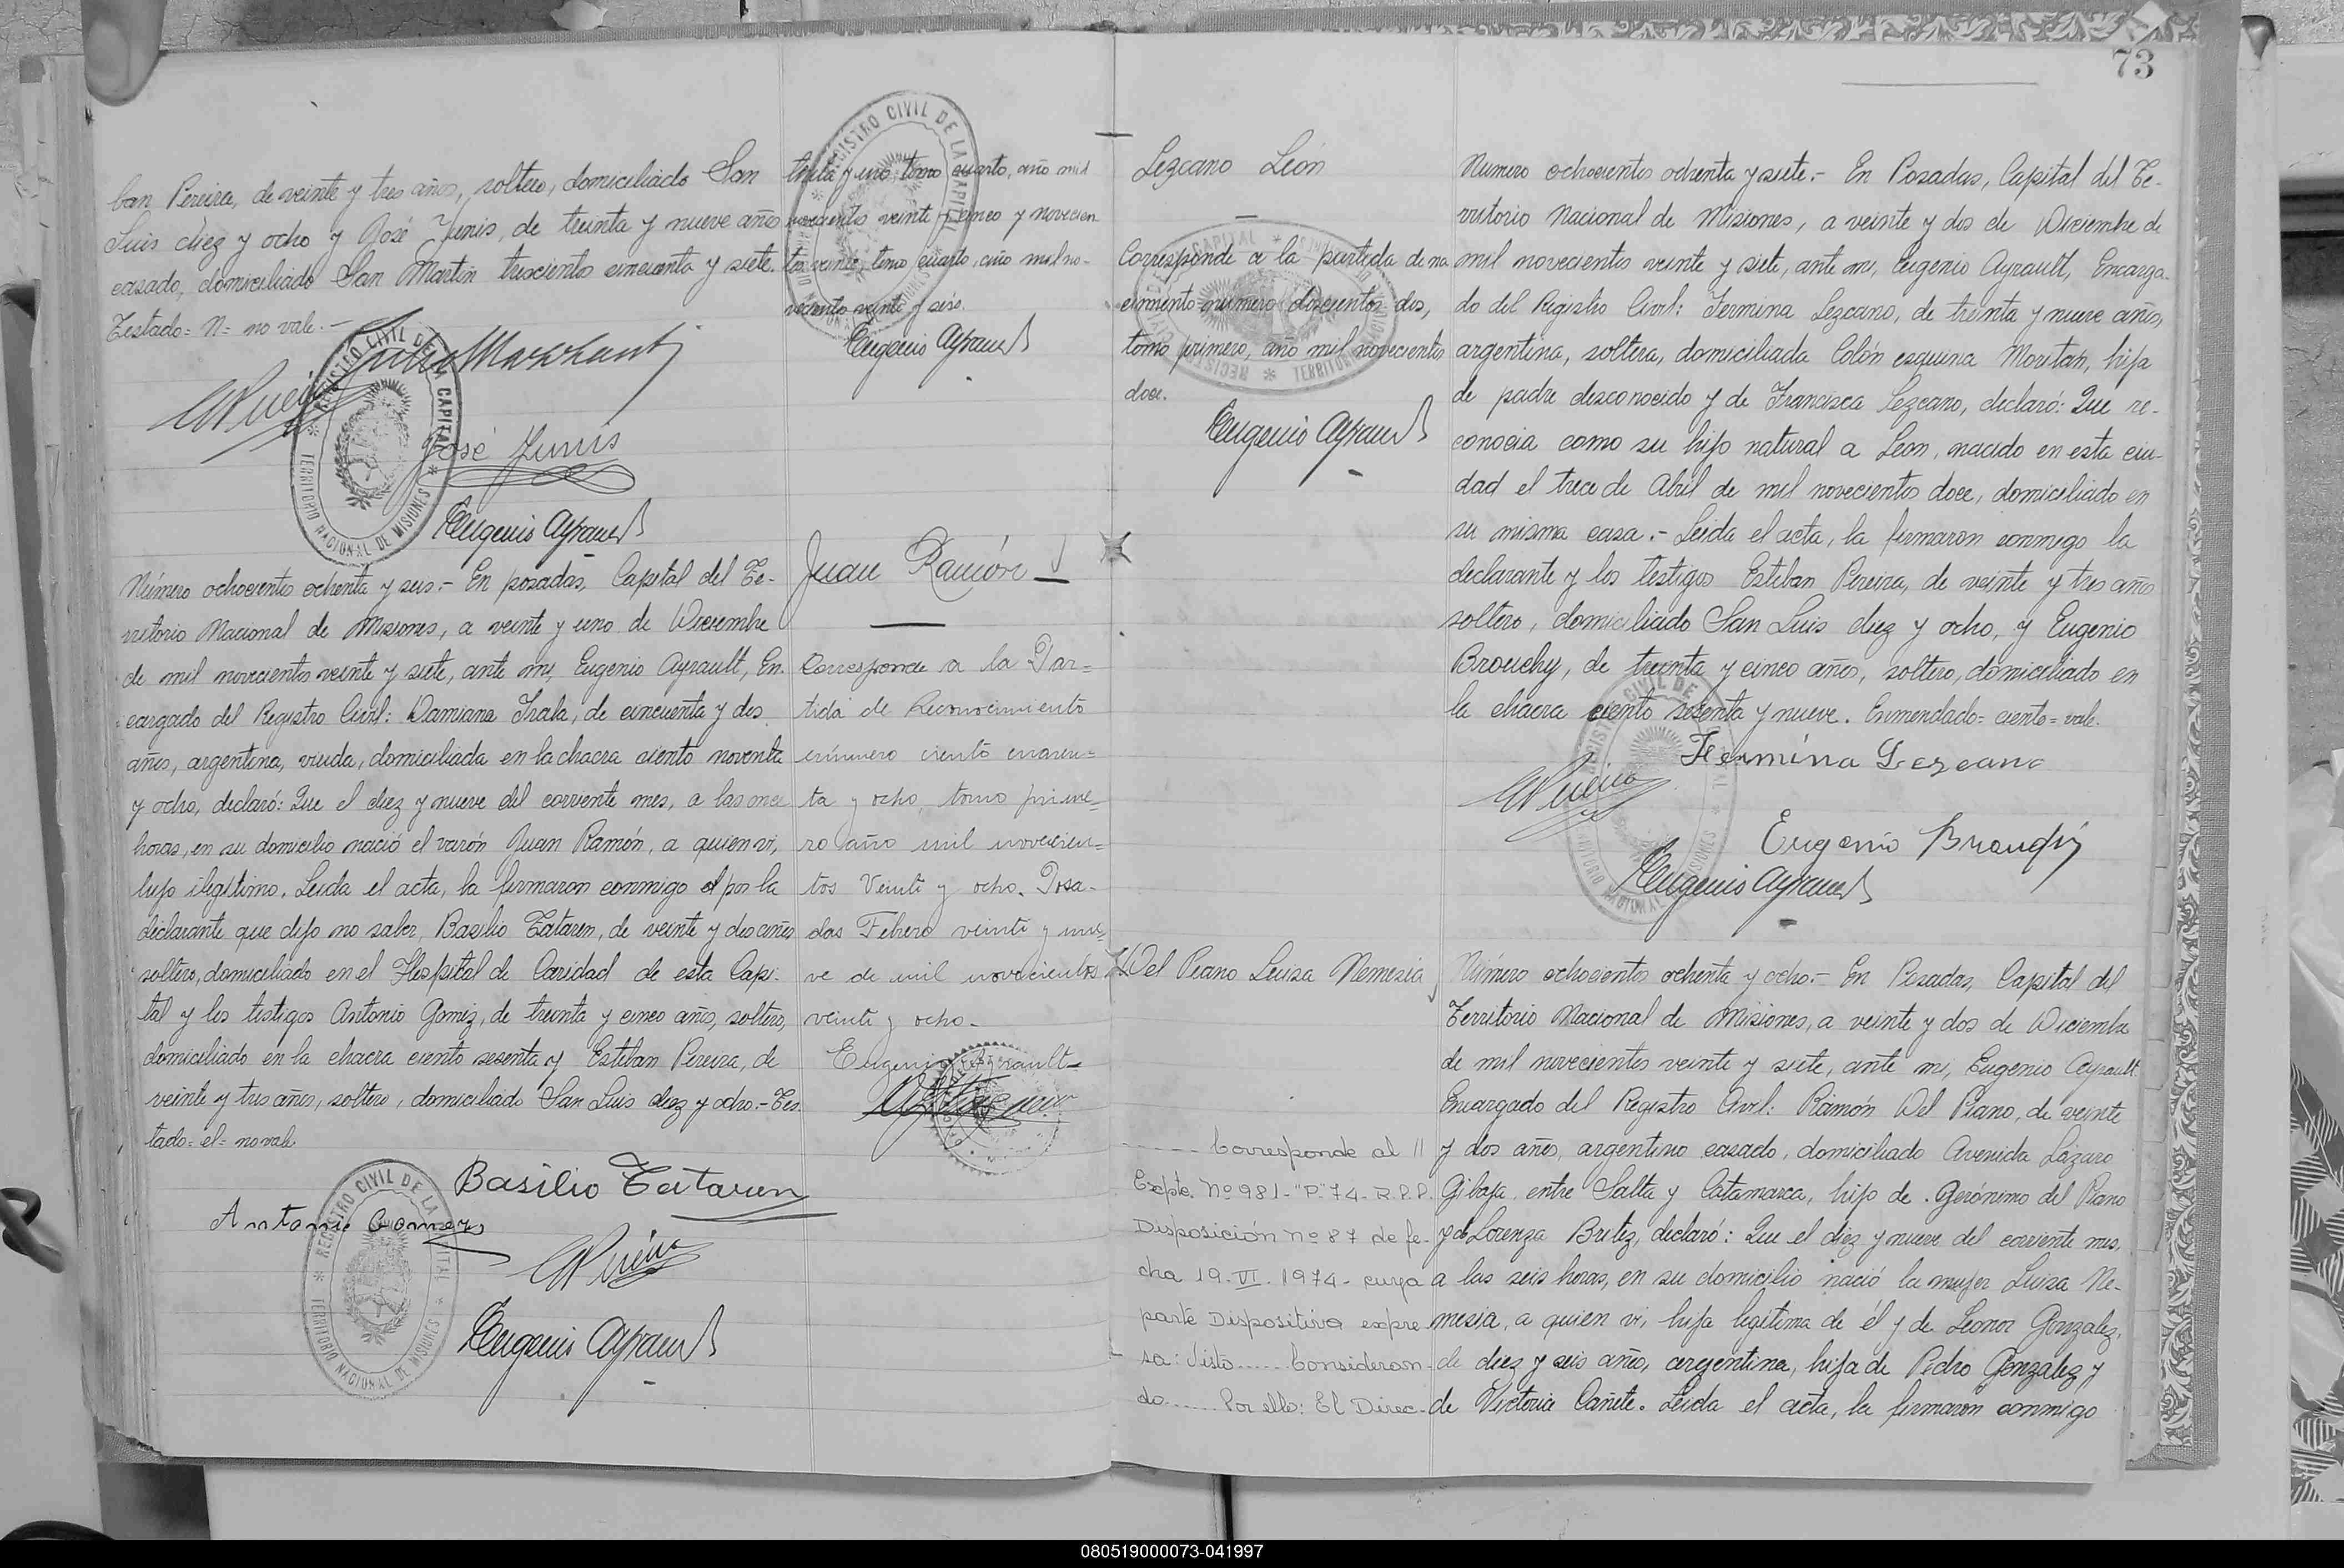 ban Pereira, de veinte y tres años, soltero, domiciliado San
Luis diez y ocho y José Junis, de treinta y nueve años
casado, domiciliado San Martin trescientos cincuenta y siete.
Testado= N= no vale.-
José Junis
Eugenio Ayrault
treinta y uno tomo cuarto, año mil
novecientos veinte y cinco y novecien
tos veinte, tomo cuarto, año mil no-
vecientos veinte y seis.
Eugenio Ayrault
REGISTRO CIVIL DE LA CAPITAL
TERRITORIO NACIONAL DE MISIONES
Número ochocientos ochenta y seis.- En posadas, Capital del Te-
rritorio Nacional de Misiones, a veinte y uno de Diciembre
de mil novecientos veinte y siete, ante mi, Eugenio Ayrault, En-
cargado del Registro Civil: Damiana Irala, de cincuenta y dos
años, argentina, viuda, domiciliada en la chacra ciento noventa
y ocho, declaró: Que el diez y nueve del corriente mes, a las once
horas, en su domicilio nació el varón Juan Ramón, a quien vi,
hijo ilegitimo. Leida el acta, la firmaron conmigo el por la
declarante que dijo no saber, Basilio Tataren, de veinte y dos años
soltero, domiciliado en el Hospital de Caridad de esta Capi-
tal y los testigos Antonio Gomez, de treinta y cinco años, soltero,
domiciliado en la chacra ciento sesenta y Esteban Pereira, de
veinte y tres años, soltero, domiciliado San Luis diez y ocho.- Tes
tado= el= no vale
Basilio Tataren
Antonio Gomez
Eugenio Ayrault
Juan Ramón
Corresponde a la Par=
tida de Reconocimiento
número ciento cuaren=
ta y ocho, tomo prime=
ro año mil novecien=
tos Veinte y ocho. Posa-
das Febrero veinte y nue=
ve de mil novecientos
veinte y ocho-
Eugenio Ayrault=
73
Lezcano León
Corresponde a la partida de na
cimiento número doscientos dos,
tomo primero, año mil novecientos
doce.
Eugenio Ayrault
Numero ochocientos ochenta y siete.- En Posadas, Capital del Te-
rritorio Nacional de Misiones, a veinte y dos de Diciembre de
mil novecientos veinte y siete, ante mi, Eugenio Ayrault, Encarga-
do del Registro Civil: Fermina Lezcano, de treinta y nueve años,
argentina, soltera, domiciliada Colón esquina Moritan, hija
de padre desconocido y de Francisca Lezcano, declaró: Que re-
conocia como su hijo natural a León, nacido en esta ciu-
dad el trece de Abril de mil novecientos doce, domiciliado en
su misma casa.- Leida el acta, la firmaron conmigo la
declarante y los testigos Esteban Pereira, de veinte y tres años
soltero, domiciliado San Luis diez y ocho, y Eugenio
Brouchy, de treinta y cinco años, soltero, domiciliado en
la chacra ciento setenta y nueve. Enmendado= ciento= vale.
Fermina Lezcano
Eugenio Brouchy
Eugenio Ayrault
Del Piano Luisa Nemesia
Número ochocientos ochenta y ocho.- En Posadas, Capital del
Territorio Nacional de Misiones, a veinte y dos de Diciembre
de mil novecientos veinte y siete, ante mi, Eugenio Ayrault
Encargado del Registro Civil: Ramón Del Piano, de veinte
y dos años, argentino casado, domiciliado Avenida Lázaro
Gibaja entre Salta y Catamarca, hijo de Gerónimo del Piano
y de Lorenza Britez, declaró: Que el diez y nueve del corriente mes,
a las seis horas, en su domicilio nació la mujer Luisa Ne-
mesia, a quien vi, hija legitima de él y de Leonor Gonzalez,
de diez y seis años, argentina, hija de Pedro Gonzalez y
de Victoria Cañete. Leida el acta, la firmaron conmigo
---- Corresponde al
Expte. Nº 981-"P"-74-R.P.P.
Disposición nº 87 de fe-
cha 19-VI-1974- cuya
parte Dispositiva expre-
sa: Visto...... Consideran-
do...... Por ello: El Direc-
080519000073-041997